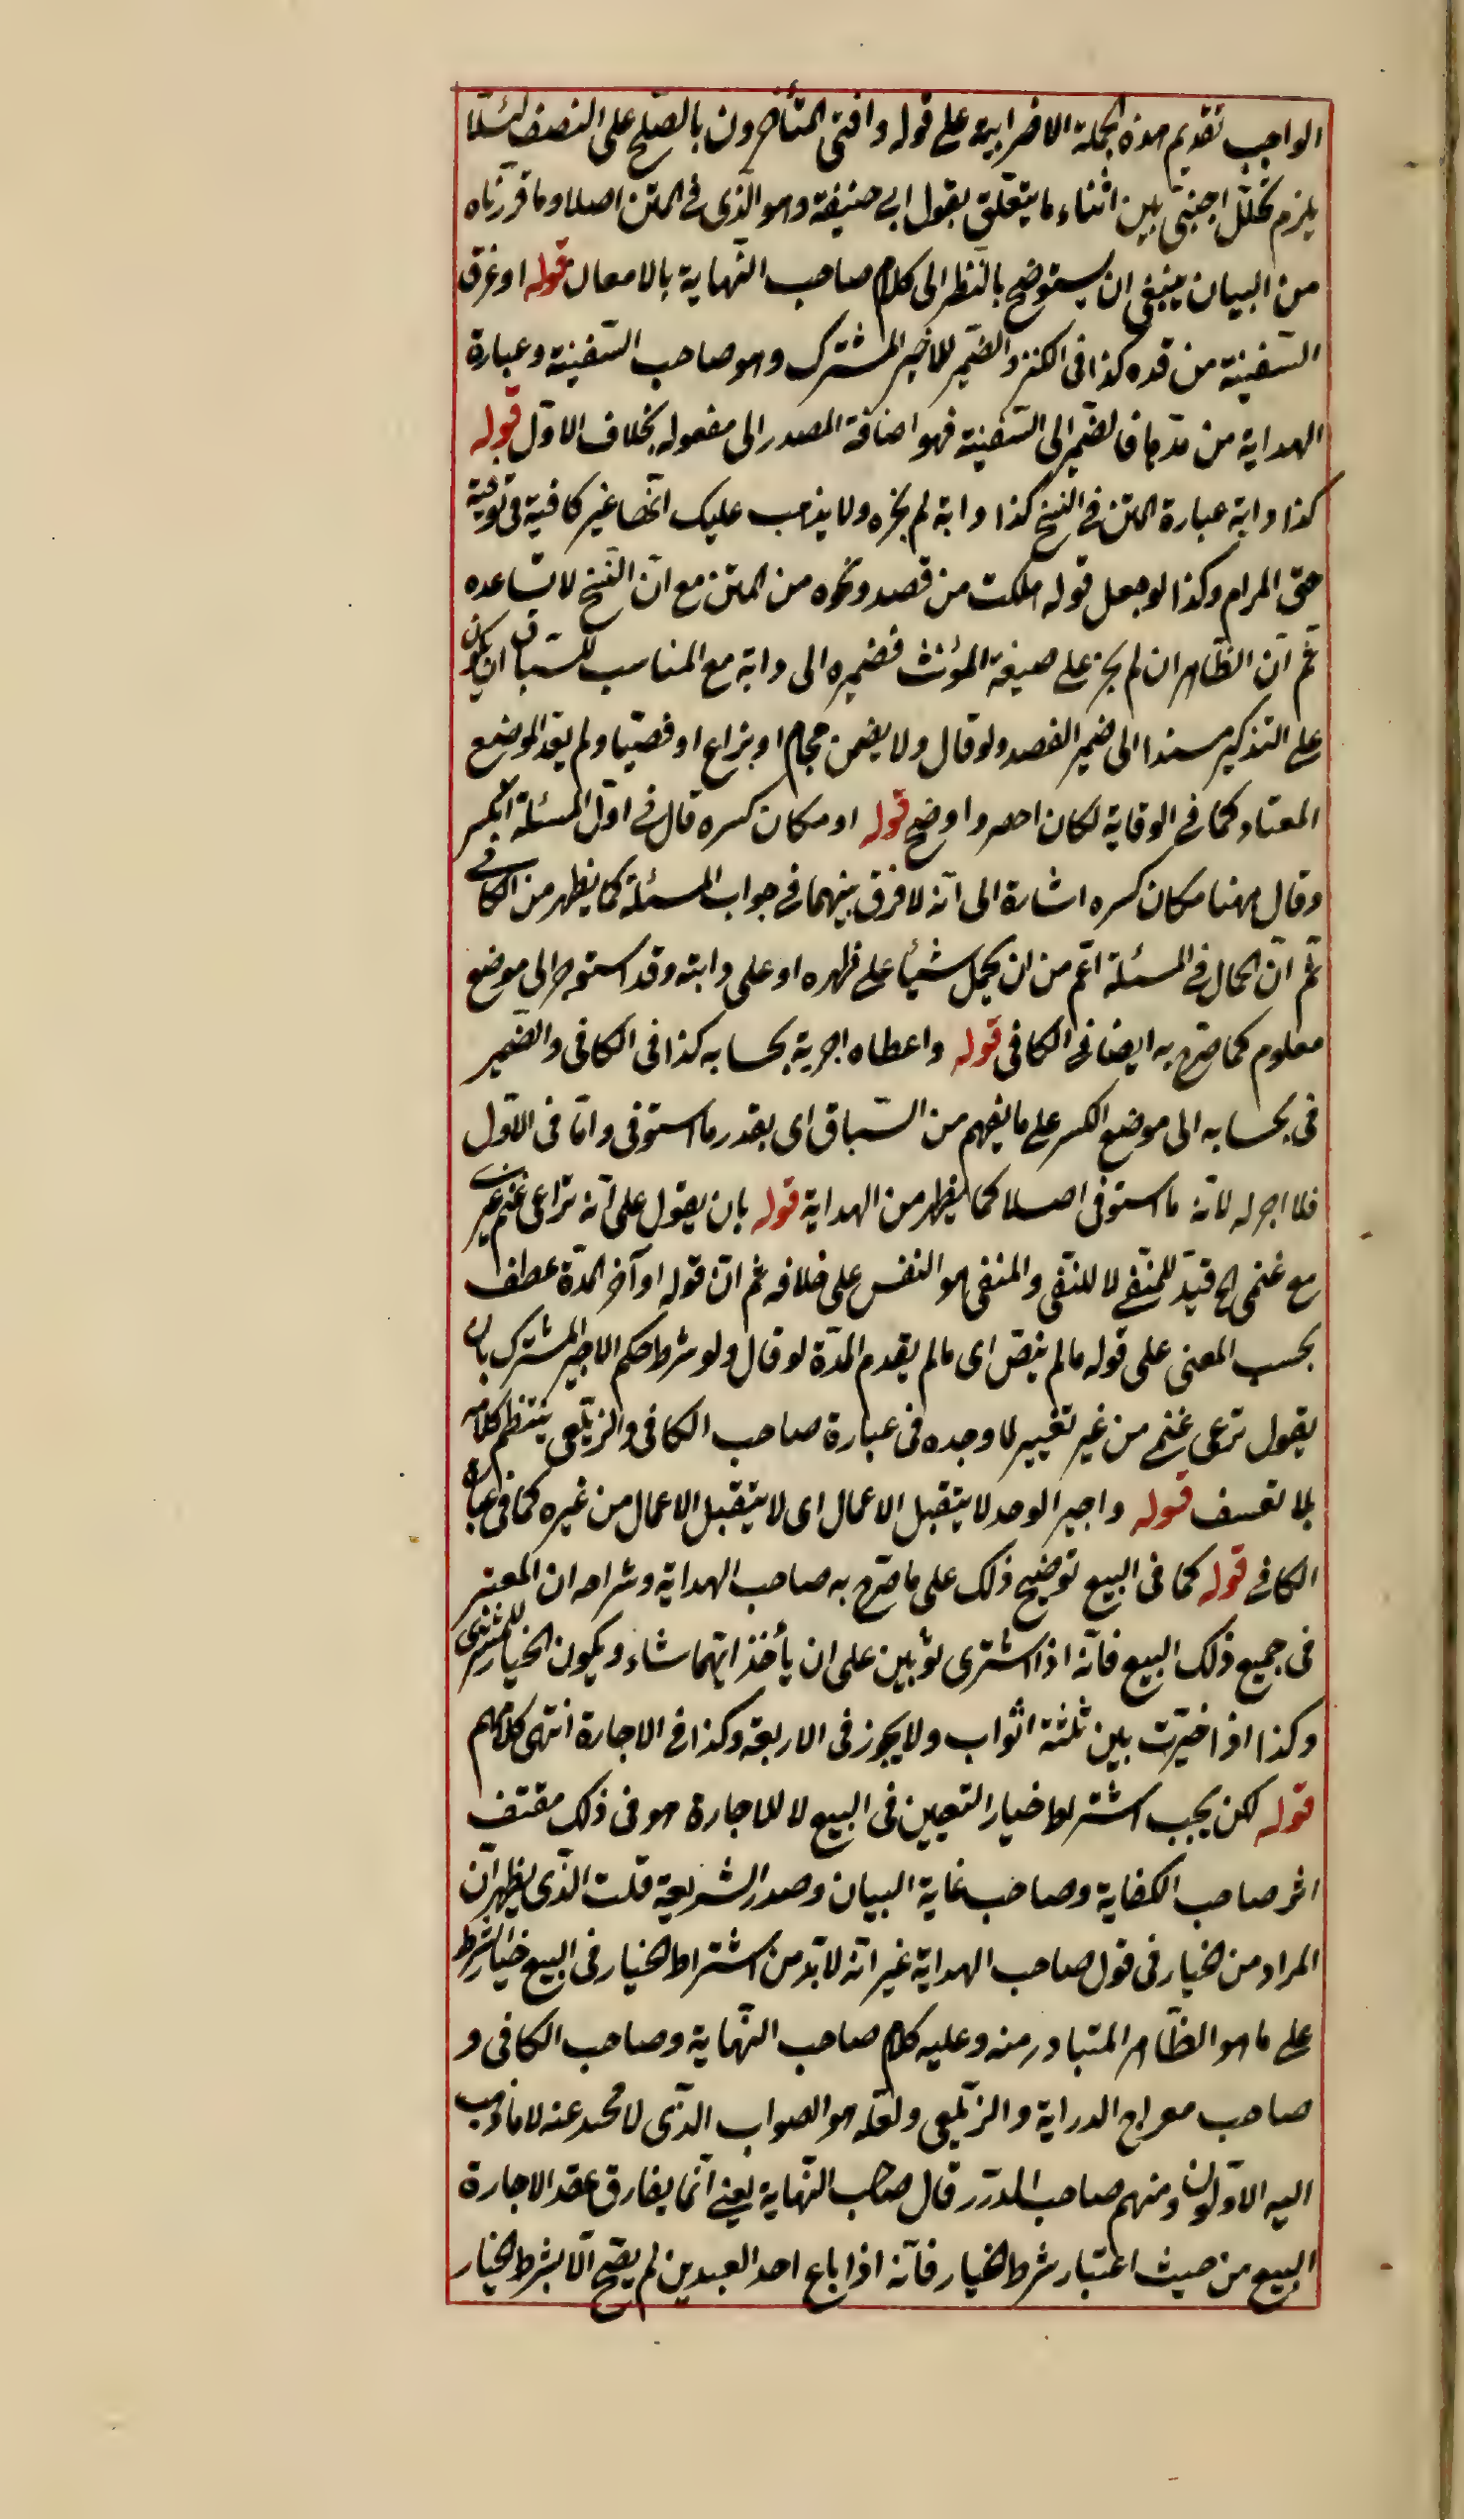 الواجب تقديم هذه الجملة الاضرابية على قوله وافتى المتأخرون بالصّلح على النصف لئلّا
يلزم تخلّل اجنبىّ بين اثناء ما يتعلّق بقول ابى حنيفة وهو الّذى فى المتن اصلا وما قرّرناه
من البيان ينبغى ان يستوضح بالنّظر الى كلام صاحب النّهاية بالامعان قوله او غرق
السّفينة من مده كذا فى الكنز والضّمير للاجير المشترك وهو صاحب السّفينة وعبارة
الهداية من مدّها فالضّمير الى السّفينة فهو اضافة المصدر الى مفعوله بخلاف الاوّل قوله
كذا دابة عبارة المتن فى النسخ كذا دابة لم يجزه ولا يذهب عليك انّها غير كافية فى توفية
حقّ المرام وكذا لو جعل قوله هلكت من فصد ونحوه من المتن مع انّ النّسخ لا تساعده
ثم انّ الظّاهر ان لم يجز على صيغة المؤنث فضميره الى دابة مع المناسب للسّباق ان يكون
على التذكير مسندا الى ضمير الفصد ولو قال ولا يضمن حجام او بزاغ او فصّاد لم يعد الموضع
المعتاد كما فى الوقاية لكان احصر واوضح قوله او مكان كسره قال فى اوّل المسئلة انكسر
وقال ههنا مكان كسره اشارة الى انّه لا فرق بينهما فى جواب المسئلة كما يظهر من الكافى
ثم انّ الحال فى المسئلة اعمّ من ان يحمل شيئا على ظهره او على دابته وقد استوجر الى موضع
معلوم كما صرّح به ايضا فى الكافى قوله واعطاه اجرية بحسابه كذا فى الكافى والضّمير
فى بحسابه الى موضع الكسر على ما يفهم من السّباق اى بقدر ما استوفى وامّا فى الاوّل
فلا اجر له لانّه ما استوفى اصلا كما يظهر من الهداية قوله بان يقول على انّه ترعى غنم غيرى
مع غنمى الخ قيدّ للمنفى لا للنّفى والمنفى هو النفس على خلافه ثم انّ قوله او آخر المدّة عطف
بحسب المعنى على قوله ما لم ينصّ اى ما لم يقدم المدّة لو قال ولو شرط حكم الاجير المشترك بان
يقول ترعى غنمى من غير تغيير لما وجده فى عبارة صاحب الكافى والزّيلعى ينتظم كلامه
بلا تعسف قوله واجير الوحد لا يتقبل الاعمال اى لا يتقبل الاعمال من غيره كما فى عبارة
الكافى قوله كما فى البيع توضيح ذلك على ما صرّح به صاحب الهداية وشراحه ان المعتبر
فى جميع ذلك البيع فانّه اذا اشترى ثوبين على ان يأخذ ايّهما شاء ويكون الخيار للمشترى
وكذا اذا خيّرت بين ثلثة اثواب ولا يجوز فى الاربعة وكذا فى الاجارة انتهى كلامهم
قوله لكن يجب اشتراط خيار التعيين فى البيع لا للاجارة هو فى ذلك مقتف
اثر صاحب الكفاية وصاحب غاية البيان وصدر الشريعة قلت الّذى يظهر انّ
المراد من الخيار فى قول صاحب الهداية غير انّه لا بدّ من اشتراط الخيار فى البيع خيار الشرط
على ما هو الظّاهر المتبادر منه وعليه كلام صاحب النّهاية وصاحب الكافى و
صاحب معراج الدراية والزّيلعى ولعلّه هو الصواب الّذى لا محيد عنه لا ما ذهب
اليه الاوّلون ومنهم صاحب الدّرر قال صاحب النّهاية يعنى انّما يفارق عقد الاجارة
البيع من حيث اعتبار شرط الخيار فانّه اذا باع احد العبدين لم يصحّ الّا بشرط الخيار